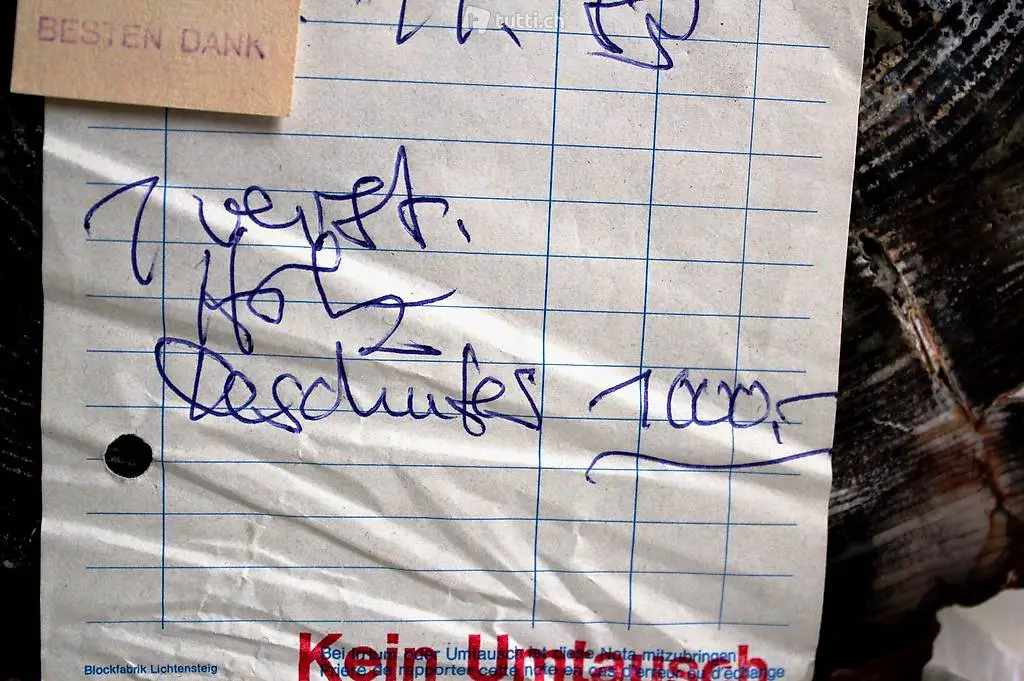 tutti.ch
BESTEN DANK
1 verst.
Holz
Deschutes 1000,-
Kein Umtausch
Bei Irrtum oder Umtausch ist diese Nota mitzubringen
Prière de rapporter cette note en cas d'erreur ou d'échange
Blockfabrik Lichtensteig